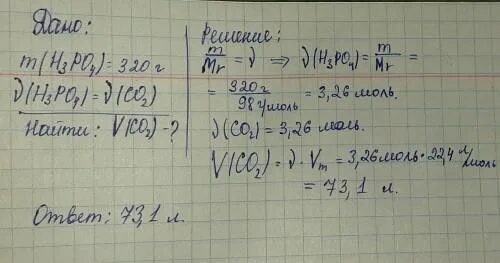 Дано:
m(H₃PO₄)=320 г
ν(H₃PO₄)=ν(CO₂)
Найти: V(CO₂)-?
Решение:
m/Mr = ν ⇒ ν(H₃PO₄)= m/Mr =
= 320 г/98 г/моль = 3,26 моль.
ν(CO₂)=3,26 моль.
V(CO₂)=ν·Vm = 3,26 моль·22,4 л/моль
= 73,1 л.
Ответ: 73,1 л.